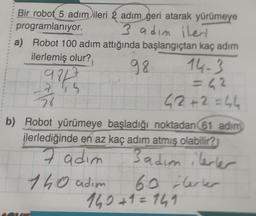 Bir robot 5 adım ileri 2 adım geri atarak yürümeye
programlanıyor. 3 adım ileri
a) Robot 100 adım attığında başlangıçtan kaç adım
ilerlemiş olur?
98 14.3
= 42
42 + 2 = 44
b) Robot yürümeye başladığı noktadan 61 adım
ilerlediğinde en az kaç adım atmış olabilir?
7 adım 3 adım ilerler
140 adım 60 ilerler
140 + 1 = 141